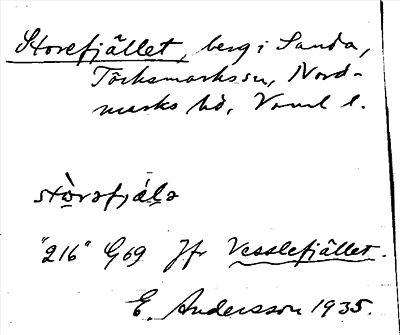 Storefjället, berg i Sanda,
Töcksmarks sn, Nord-
marks hd, Vrml l.
stòrəfjálə
"216" G69 Jfr Vesslefjället.
E. Andersson 1935.